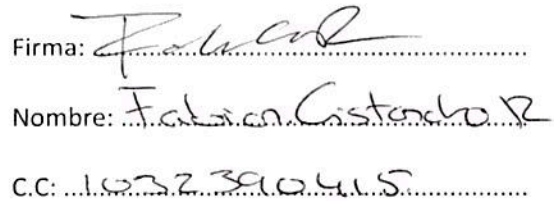 Firma:
Nombre: Fabian Cristancho R
C.C: 1032390415